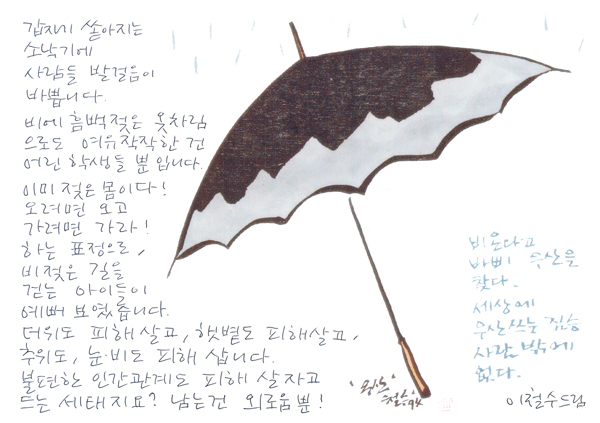 갑자기 쏟아지는
소낙기에
사람들 발걸음이
바쁩니다.
비에 흠뻑젖은 옷차림
으로도 여유작작한 건
어린 학생들 뿐입니다.
이미 젖은 몸이다!
오려면 오고
가려면 가라!
하는 표정으로,
비젖은 길을
걷는 아이들이
예뻐 보였습니다.
더위도 피해살고, 햇볕도 피해살고,
추위도, 눈·비도 피해 삽니다.
불편한 인간관계도 피해 살자고
드는 세태지요? 남는건 외로움뿐!
비온다고
바삐 우산을
찾다.
세상에
우산쓰는 짐승
사람밖에
없다.
'우산'
철수 94
이철수드림